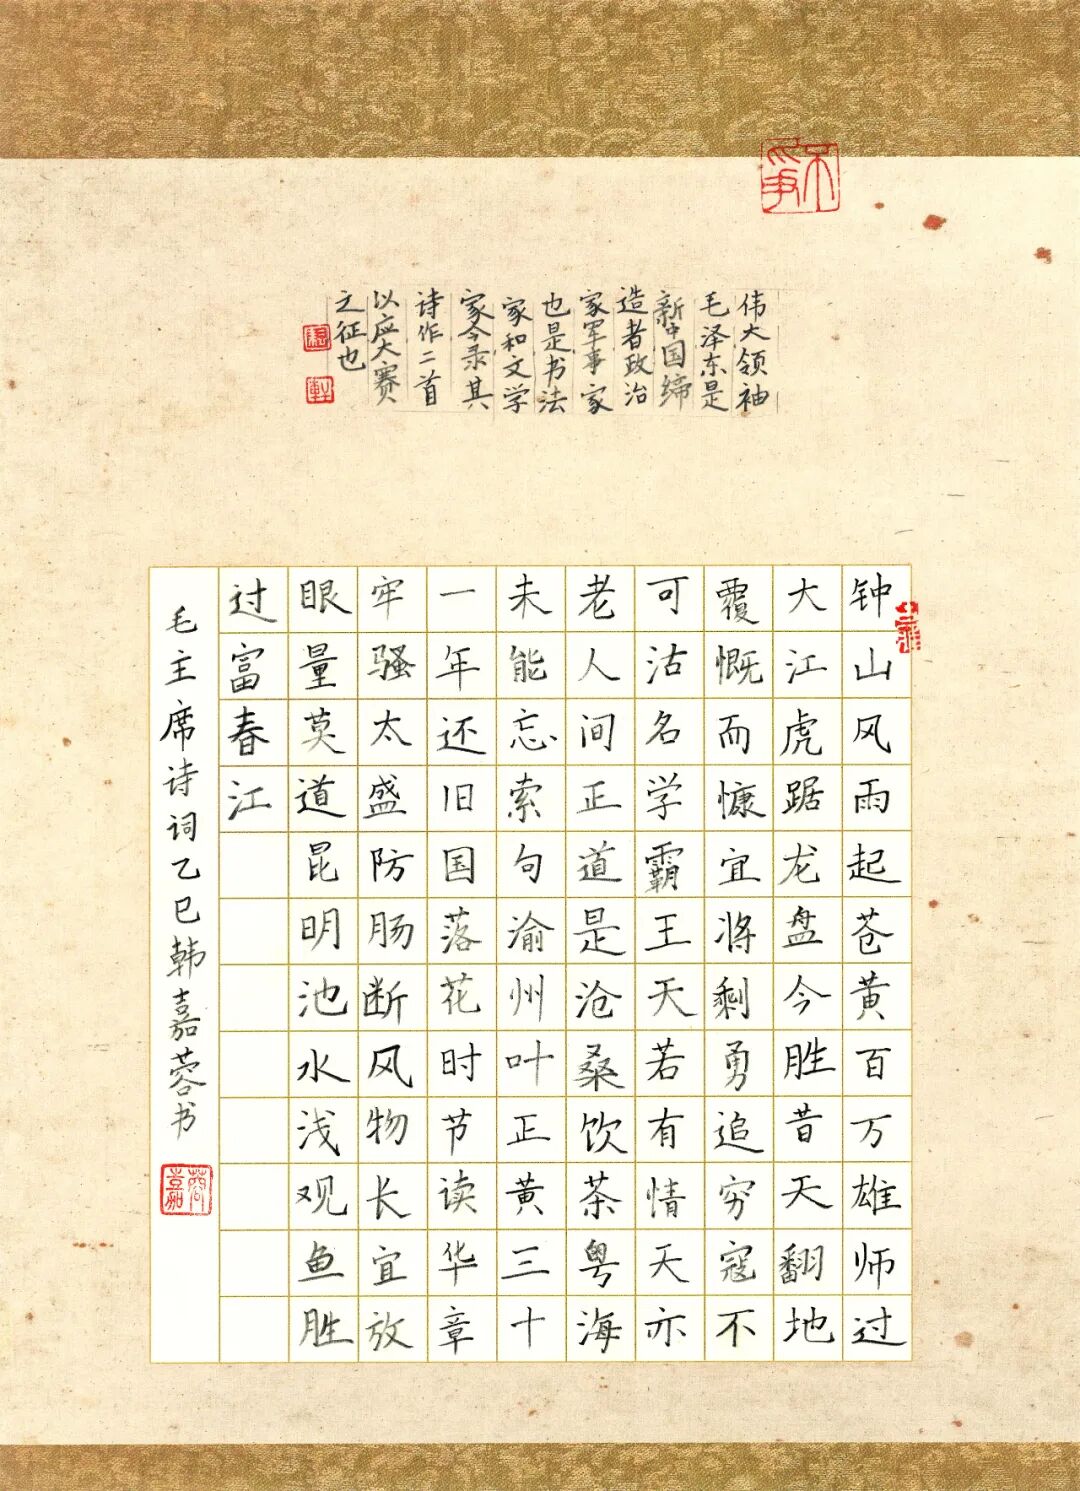 不争
伟大领袖
毛泽东是
新中国缔
造者政治
家军事家
也是书法
家和文学
家今录其
诗作二首
以应大赛
之征也
钟山风雨起苍黄百万雄师过
大江虎踞龙盘今胜昔天翻地
覆慨而慷宜将剩勇追穷寇不
可沽名学霸王天若有情天亦
老人间正道是沧桑饮茶粤海
未能忘索句渝州叶正黄三十
一年还旧国落花时节读华章
牢骚太盛防肠断风物长宜放
眼量莫道昆明池水浅观鱼胜
过富春江
毛主席诗词乙巳韩嘉蓉书
嘉蓉